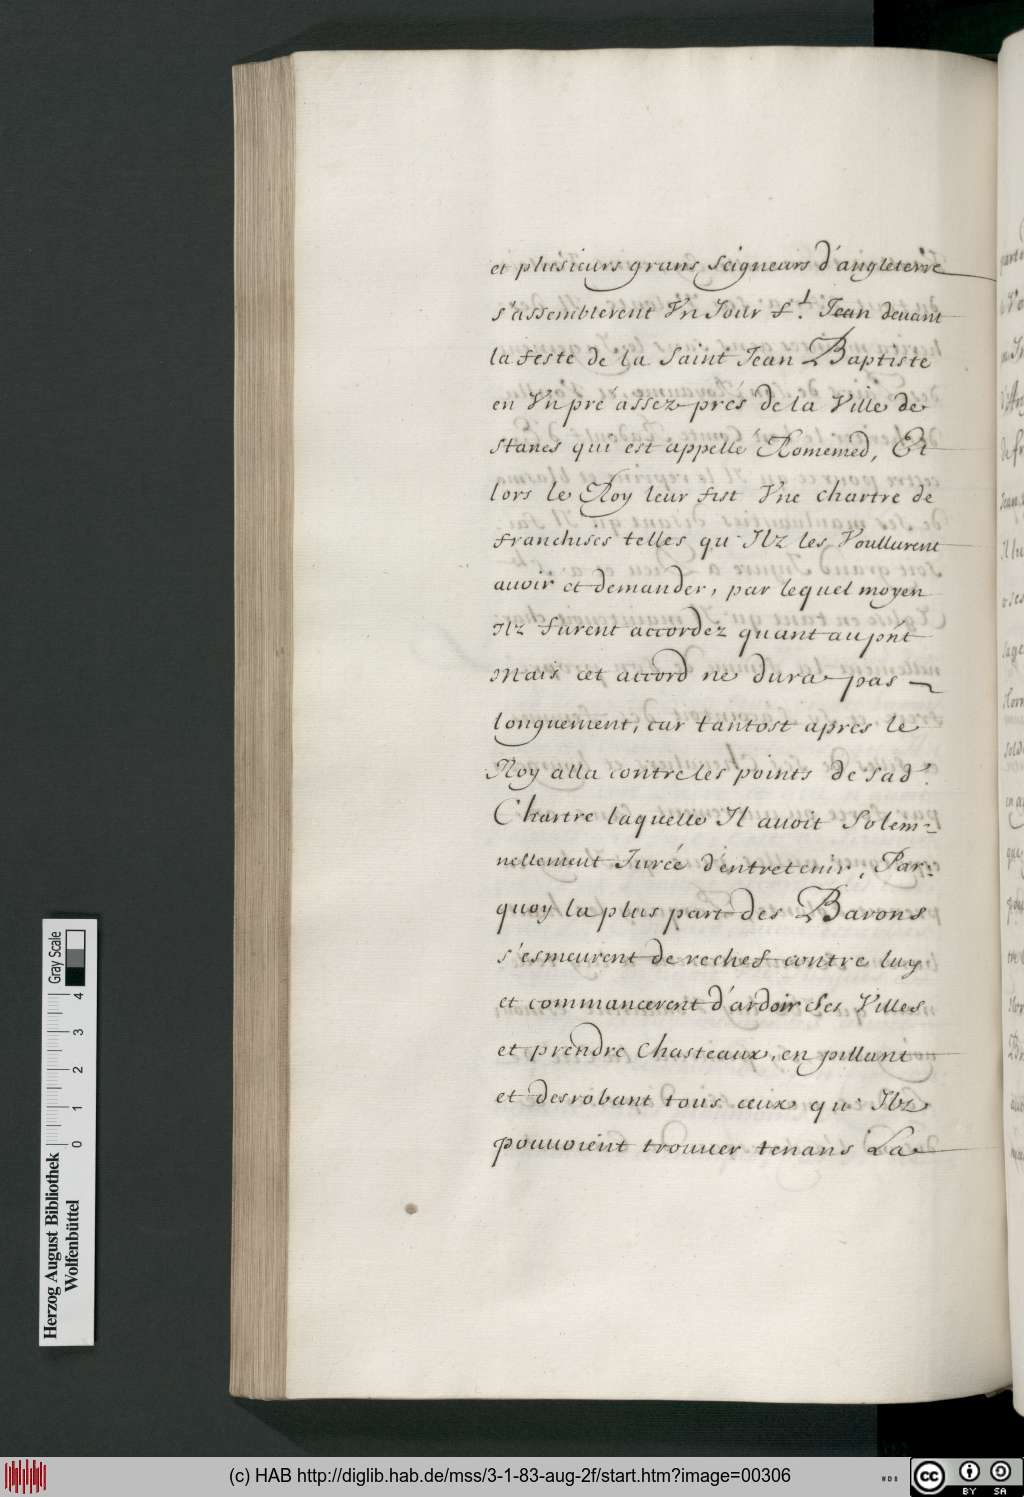 et plusieurs grans Seigneurs d'angleterre
s'assemblerent Vn Jour S.t Jean deuant
la feste de la Saint Jean Baptiste
en Vn pré assez prés de la Ville de
Stanes qui est appellé Romemed, Et
lors le Roy leur fist Vne Chartre de
franchises telles qu'Ilz les Voullurent
auoir et demander, par lequel moyen
Ilz furent accordez quant au pñt
Mais cet accord ne dura pas
longuement, car tantost apres le
Roy alla contre les points de sad.
Chartre laquelle Il auoit Solem-
nellement Jurée d'entretenir, Par-
quoy la plus part des Barons
s'esmeurent de rechef contre luy
et commancerent d'ardoir Ses Villes
et prendre Chasteaux, en pillant
et desrobant tous ceux qu'Ilz
pouuoient trouuer tenans La
Herzog August Bibliothek
Wolfenbüttel
0 1 2 3 4
Gray Scale
(c) HAB http://diglib.hab.de/mss/3-1-83-aug-2f/start.htm?image=00306
WDB
cc BY SA